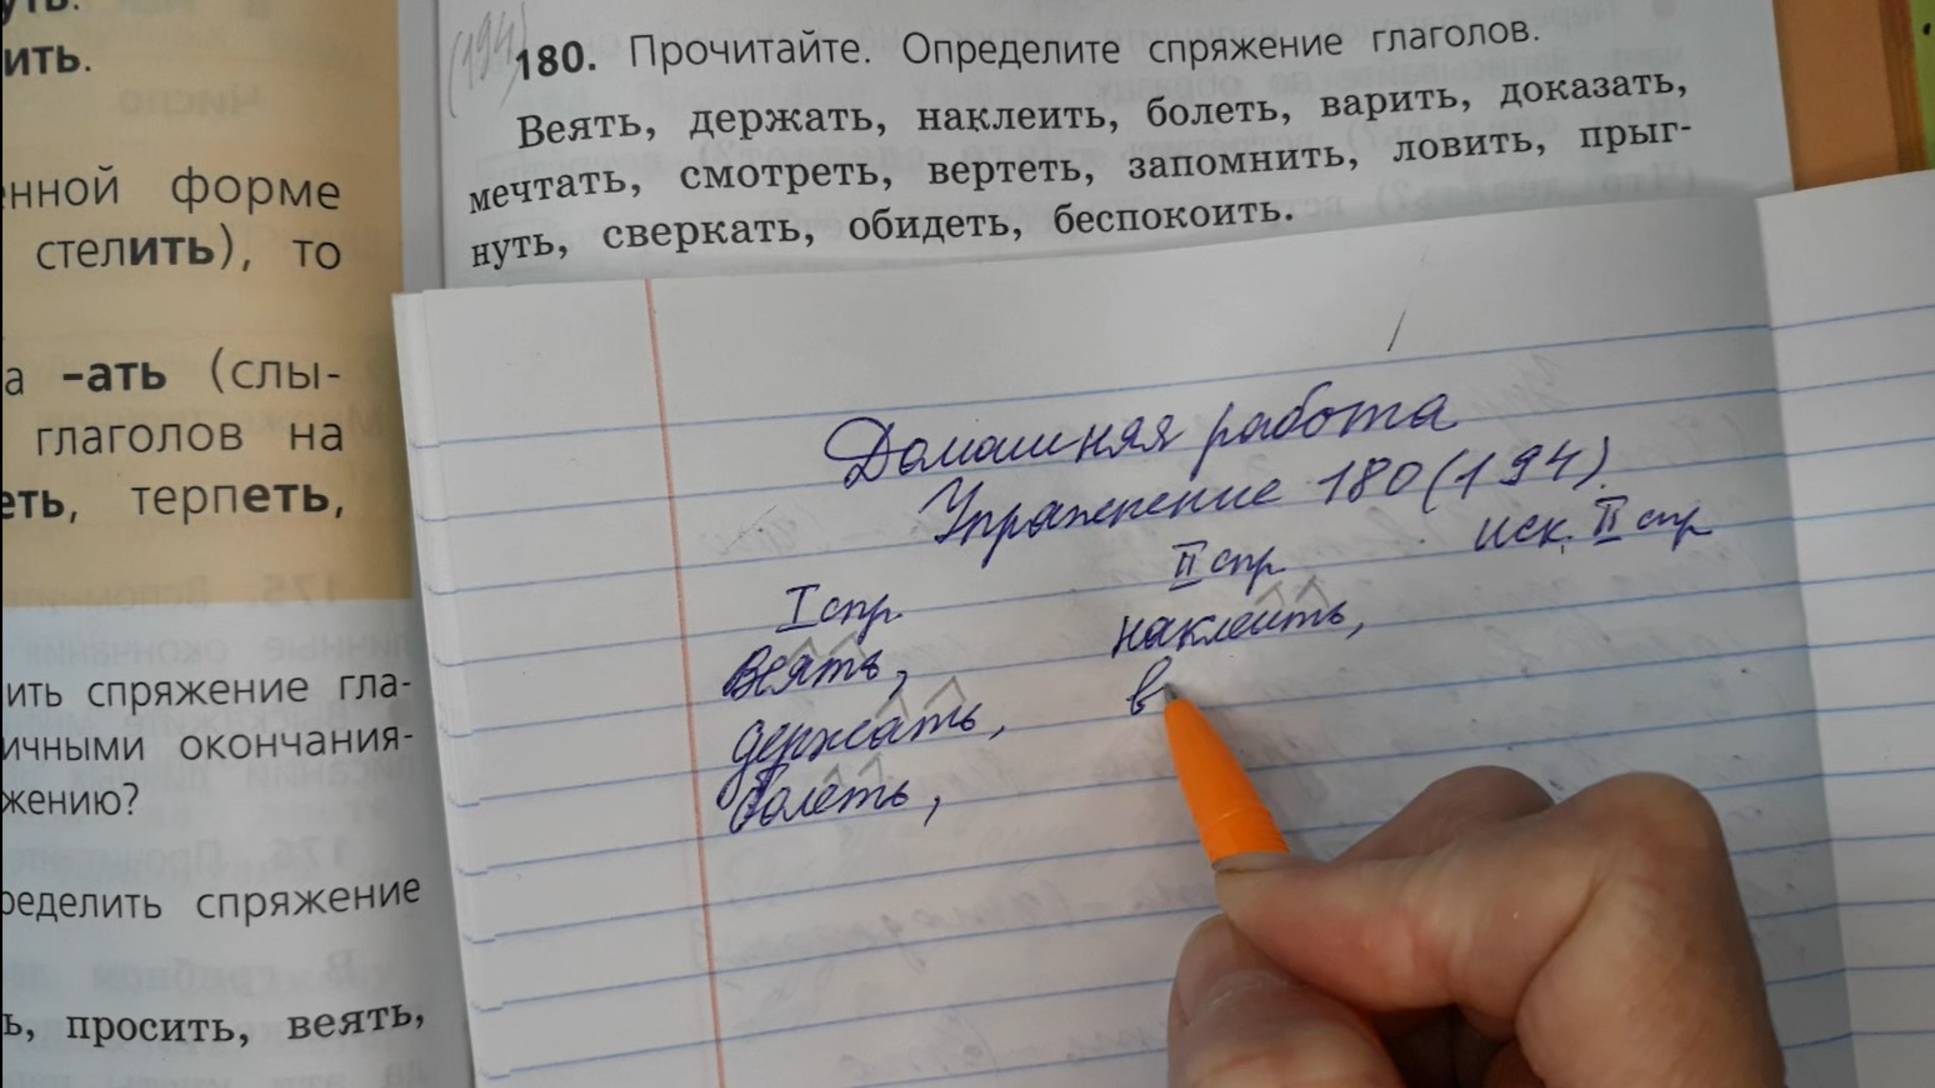 уть.
ить.
енной форме
стелить), то
а -ать (слы-
глаголов на
еть, терпеть,
ить спряжение гла-
ичными окончания-
жению?
ределить спряжение
ь, просить, веять,
(194)
180. Прочитайте. Определите спряжение глаголов.
Веять, держать, наклеить, болеть, варить, доказать,
мечтать, смотреть, вертеть, запомнить, ловить, прыг-
нуть, сверкать, обидеть, беспокоить.
Домашняя работа
Упражнение 180(194).
I спр. II спр. иск. II спр
Веять, наклеить,
держать, в
болеть,